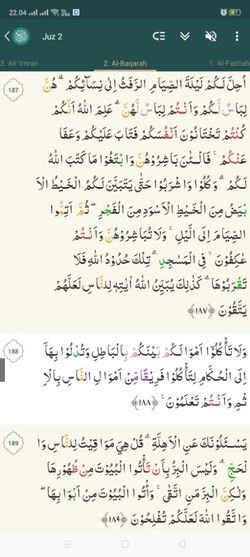 22.04
Juz 2
3. Ali 'Imran 2. Al-Baqarah 1. Al-Fatihah
187
اُحِلَّ لَكُمْ لَيْلَةَ الصِّيَامِ الرَّفَثُ اِلٰى نِسَاۤىِٕكُمْ ۗ هُنَّ
لِبَاسٌ لَّكُمْ وَاَنْتُمْ لِبَاسٌ لَّهُنَّ ۗ عَلِمَ اللّٰهُ اَنَّكُمْ
كُنْتُمْ تَخْتَانُوْنَ اَنْفُسَكُمْ فَتَابَ عَلَيْكُمْ وَعَفَا
عَنْكُمْ ۚ فَالْـٰٔنَ بَاشِرُوْهُنَّ وَابْتَغُوْا مَا كَتَبَ اللّٰهُ
لَكُمْ ۗ وَكُلُوْا وَاشْرَبُوْا حَتّٰى يَتَبَيَّنَ لَكُمُ الْخَيْطُ الْاَ
بْيَضُ مِنَ الْخَيْطِ الْاَسْوَدِ مِنَ الْفَجْرِ ۖ ثُمَّ اَتِمُّوا
الصِّيَامَ اِلَى الَّيْلِ ۚ وَلَا تُبَاشِرُوْهُنَّ وَاَنْتُمْ
عٰكِفُوْنَ ۙ فِى الْمَسٰجِدِ ۗ تِلْكَ حُدُوْدُ اللّٰهِ فَلَا
تَقْرَبُوْهَا ۗ كَذٰلِكَ يُبَيِّنُ اللّٰهُ اٰيٰتِهٖ لِلنَّاسِ لَعَلَّهُمْ
يَتَّقُوْنَ ﴿١٨٧﴾
188
وَلَا تَأْكُلُوْٓا اَمْوَالَكُمْ بَيْنَكُمْ بِالْبَاطِلِ وَتُدْلُوْا بِهَآ
اِلَى الْحُكَّامِ لِتَأْكُلُوْا فَرِيْقًا مِّنْ اَمْوَالِ النَّاسِ بِالْاِ
ثْمِ وَاَنْتُمْ تَعْلَمُوْنَ ﴿١٨٨﴾
189
يَسْـَٔلُوْنَكَ عَنِ الْاَهِلَّةِ ۗ قُلْ هِيَ مَوَاقِيْتُ لِلنَّاسِ وَا
لْحَجِّ ۗ وَلَيْسَ الْبِرُّ بِاَنْ تَأْتُوا الْبُيُوْتَ مِنْ ظُهُوْرِهَا
وَلٰكِنَّ الْبِرَّ مَنِ اتَّقٰى ۚ وَأْتُوا الْبُيُوْتَ مِنْ اَبْوَابِهَا ۖ
وَاتَّقُوا اللّٰهَ لَعَلَّكُمْ تُفْلِحُوْنَ ﴿١٨٩﴾